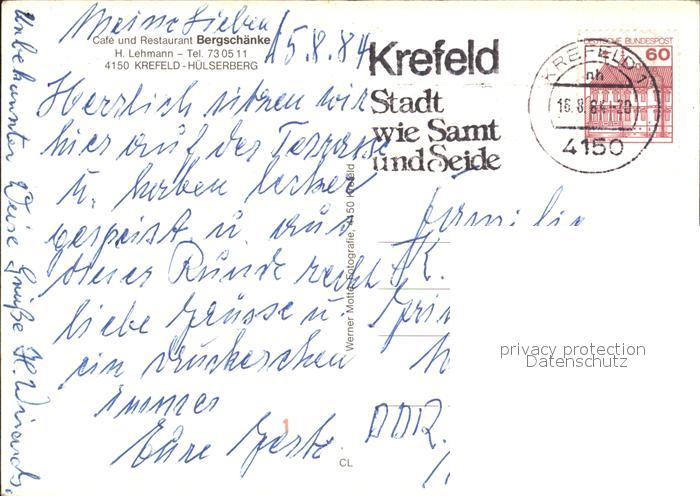 Meine Lieben! 15.8.84
Café und Restaurant Bergschänke
H. Lehmann – Tel. 73 05 11
4150 KREFELD - HÜLSERBERG
Herrlich sitzen wir
hier auf der Terrasse
u. haben lecker
gespeist u. aus
dieser Runde recht
liebe Grüsse u.
ein Drückerchen
immer
Eure Gerta
Unbekannter Weise Grüße H.
Werner Motte Fotografie, 4150 Krefeld
CL
Krefeld
Stadt
wie Samt
und Seide
DEUTSCHE BUNDESPOST
60
KREFELD 1
nh
16.8.84-20
4150
Familie
K.
DDR
privacy protection
Datenschutz